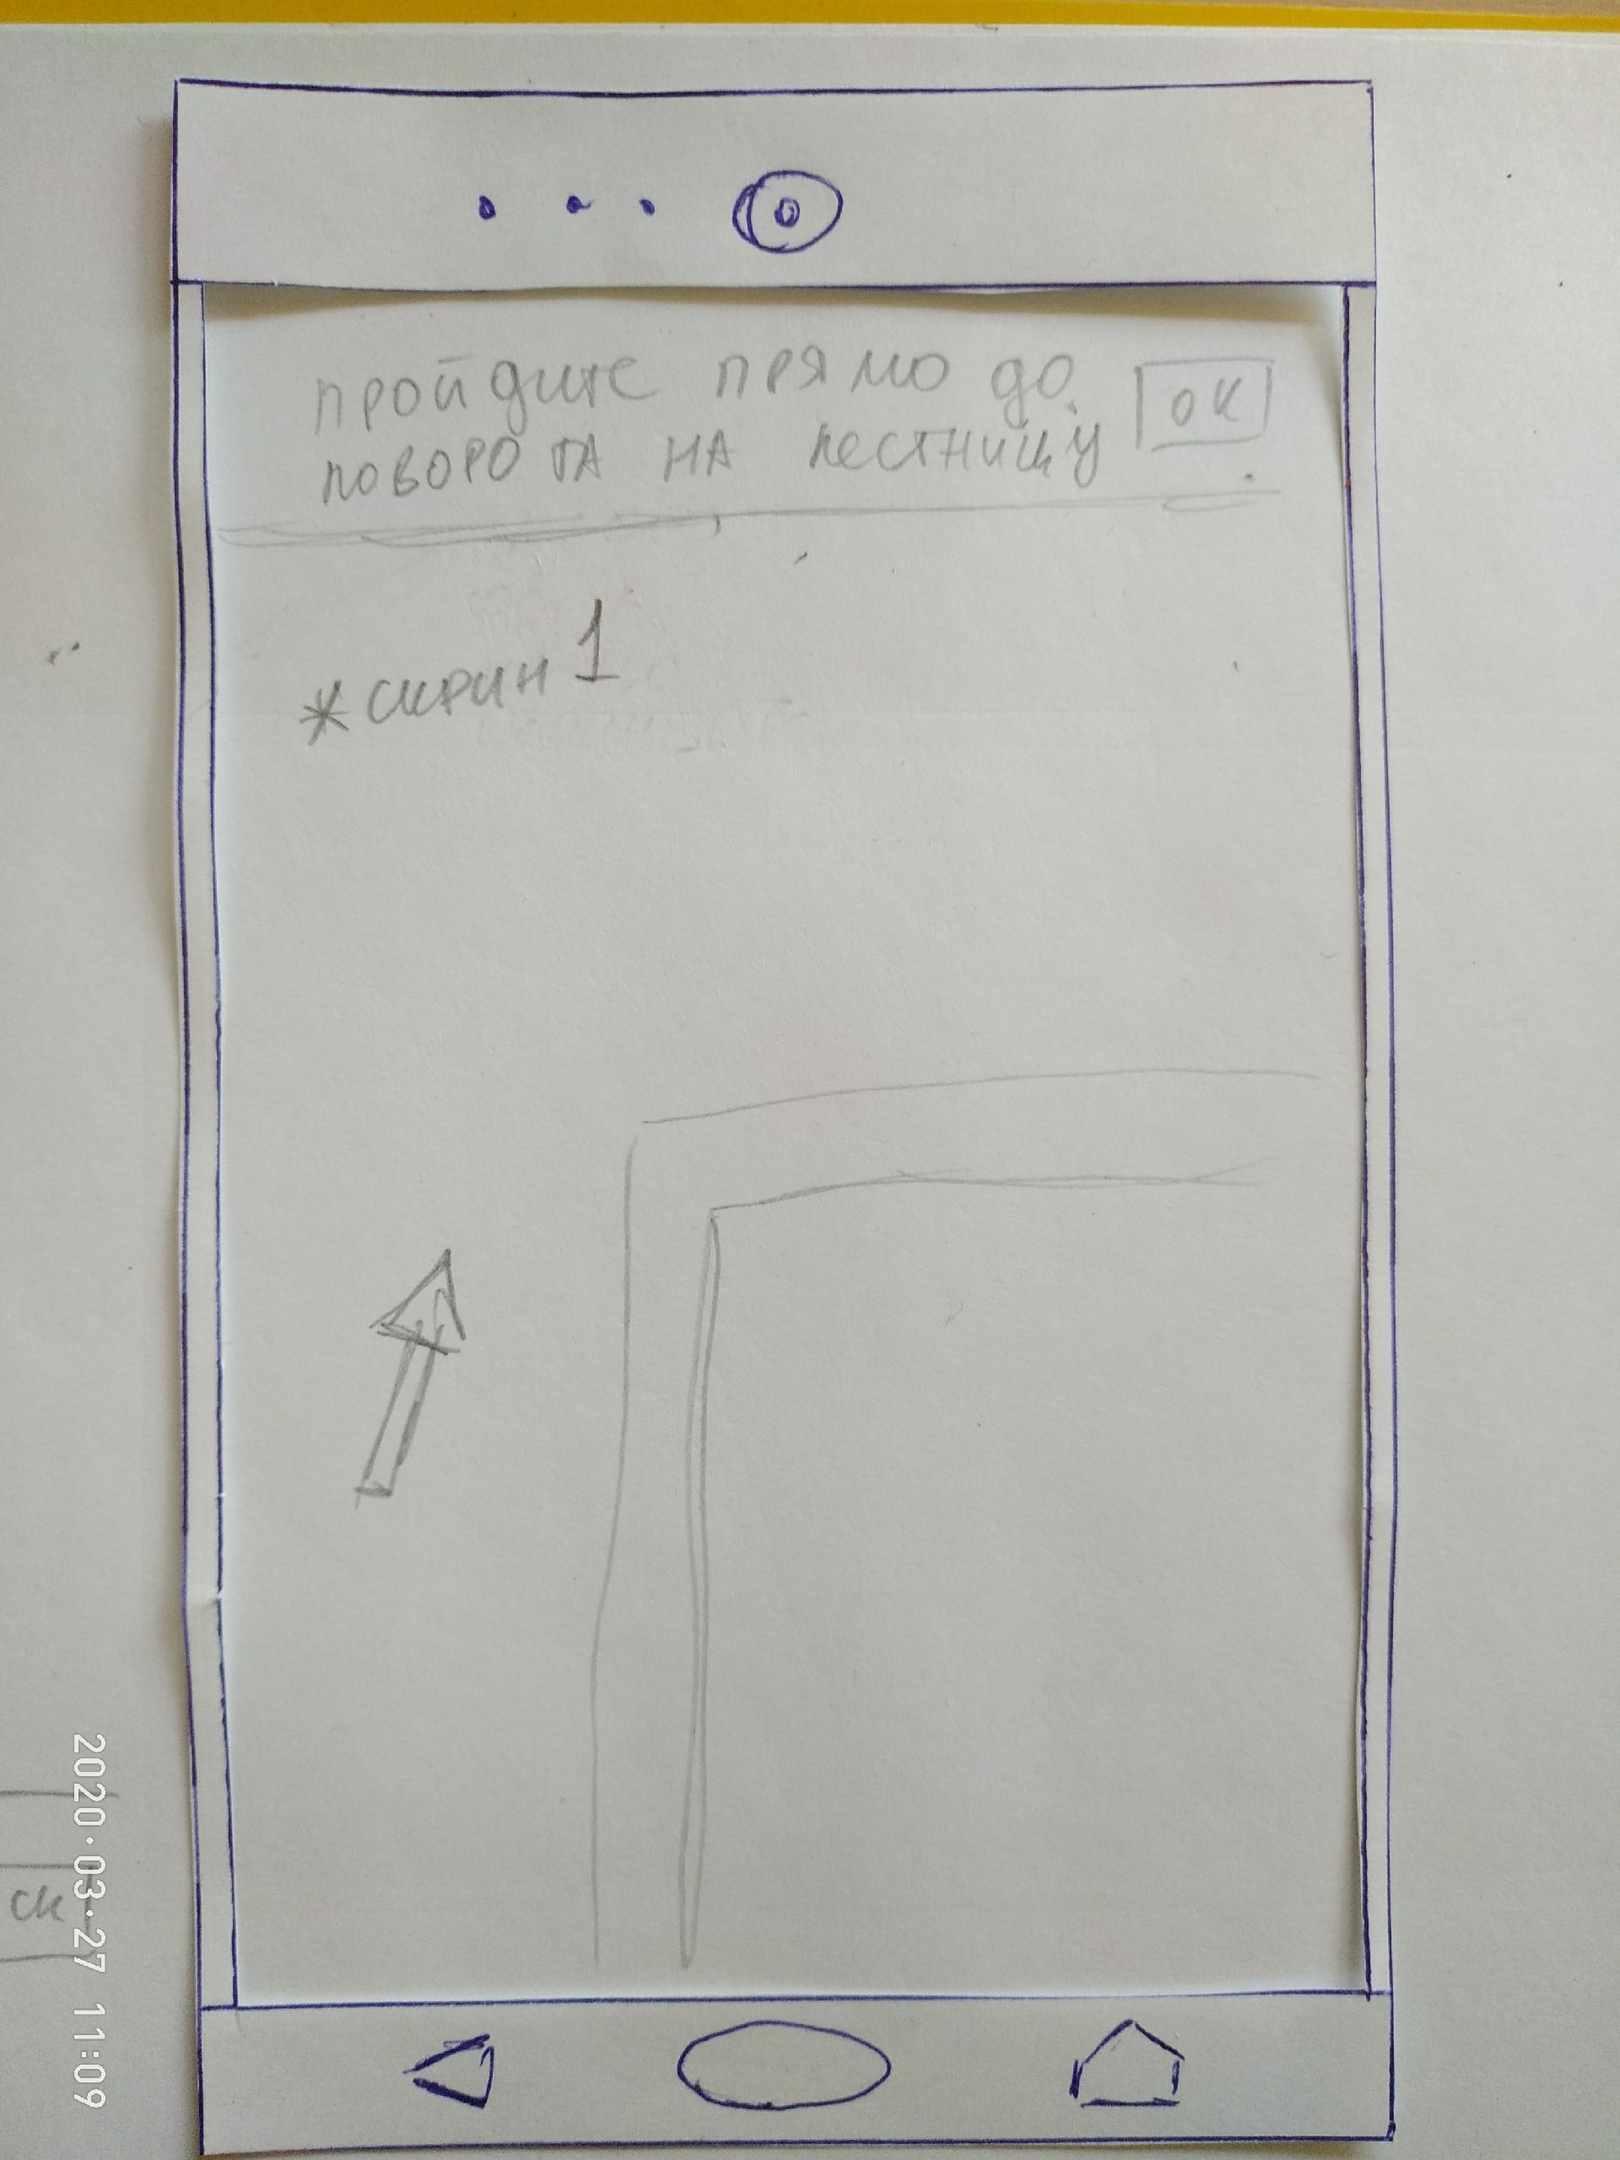 пройдите прямо до
поворота на лестницу
ок
*скрин 1
ск
2020·03·27 11:09